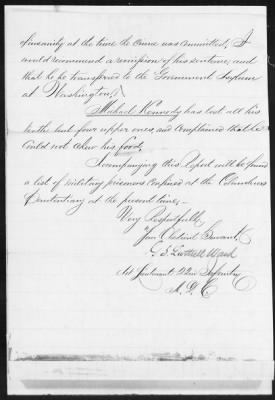 of insanity at the time the crime was committed, I
would recommend a remission of his sentence, and
that he be transferred to the Government Asylum
at Washington.
Michael Kennedy has lost all his
teeth but four upper ones, and complained that he
could not chew his food.
Accompanying this Report will be found
a list of military prisoners confined at the Columbus
Penitentiary at the present time.
Very Respectfully
Your Obedient Servant,
G. S. Luttrell Ward
1st Lieutenant 22nd Infantry
A. D. C.